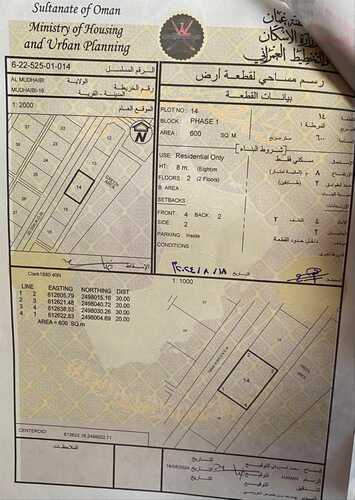 Sultanate of Oman
Ministry of Housing
and Urban Planning
سلطنة عمان
وزارة الإسكان
والتخطيط العمراني
6-22-525-01-014
الرقم المسلسل
رسم مساحي لقطعة أرض
AL MUDHAIBI
الولاية
رقم الخريطة
بيانات القطعة
AL MUDHAIBI-16
المدينة - القرية
1: 2000
الموقع العام
PLOT NO: 14
١٤
BLOCK: PHASE 1
المرحلة ١
AREA: 600 SQ.M.
٦٠٠
شروط البناء
USE: Residential Only
سكني فقط
HT: 8 m. (Eightm
FLOORS: 2 (2 Floors)
B. AREA
SETBACKS
FRONT: 4 BACK: 2
SIDE: 2
PARKING: Inside
داخل حدود القطعة
CONDITIONS
13
14
GREEN AREA
Clark1880 40N
1: 1000
التاريخ
LINE EASTING NORTHING DIST
1 2 612605.79 2498015.16 30.00
2 3 612621.48 2498040.72 20.00
3 4 612638.53 2498030.26 30.00
4 1 612622.83 2498004.69 20.00
AREA = 600 SQ.m
14
CENTEROID
612622.16,2498022.71
ملاحظات
18/08/2024
التاريخ
HANAN